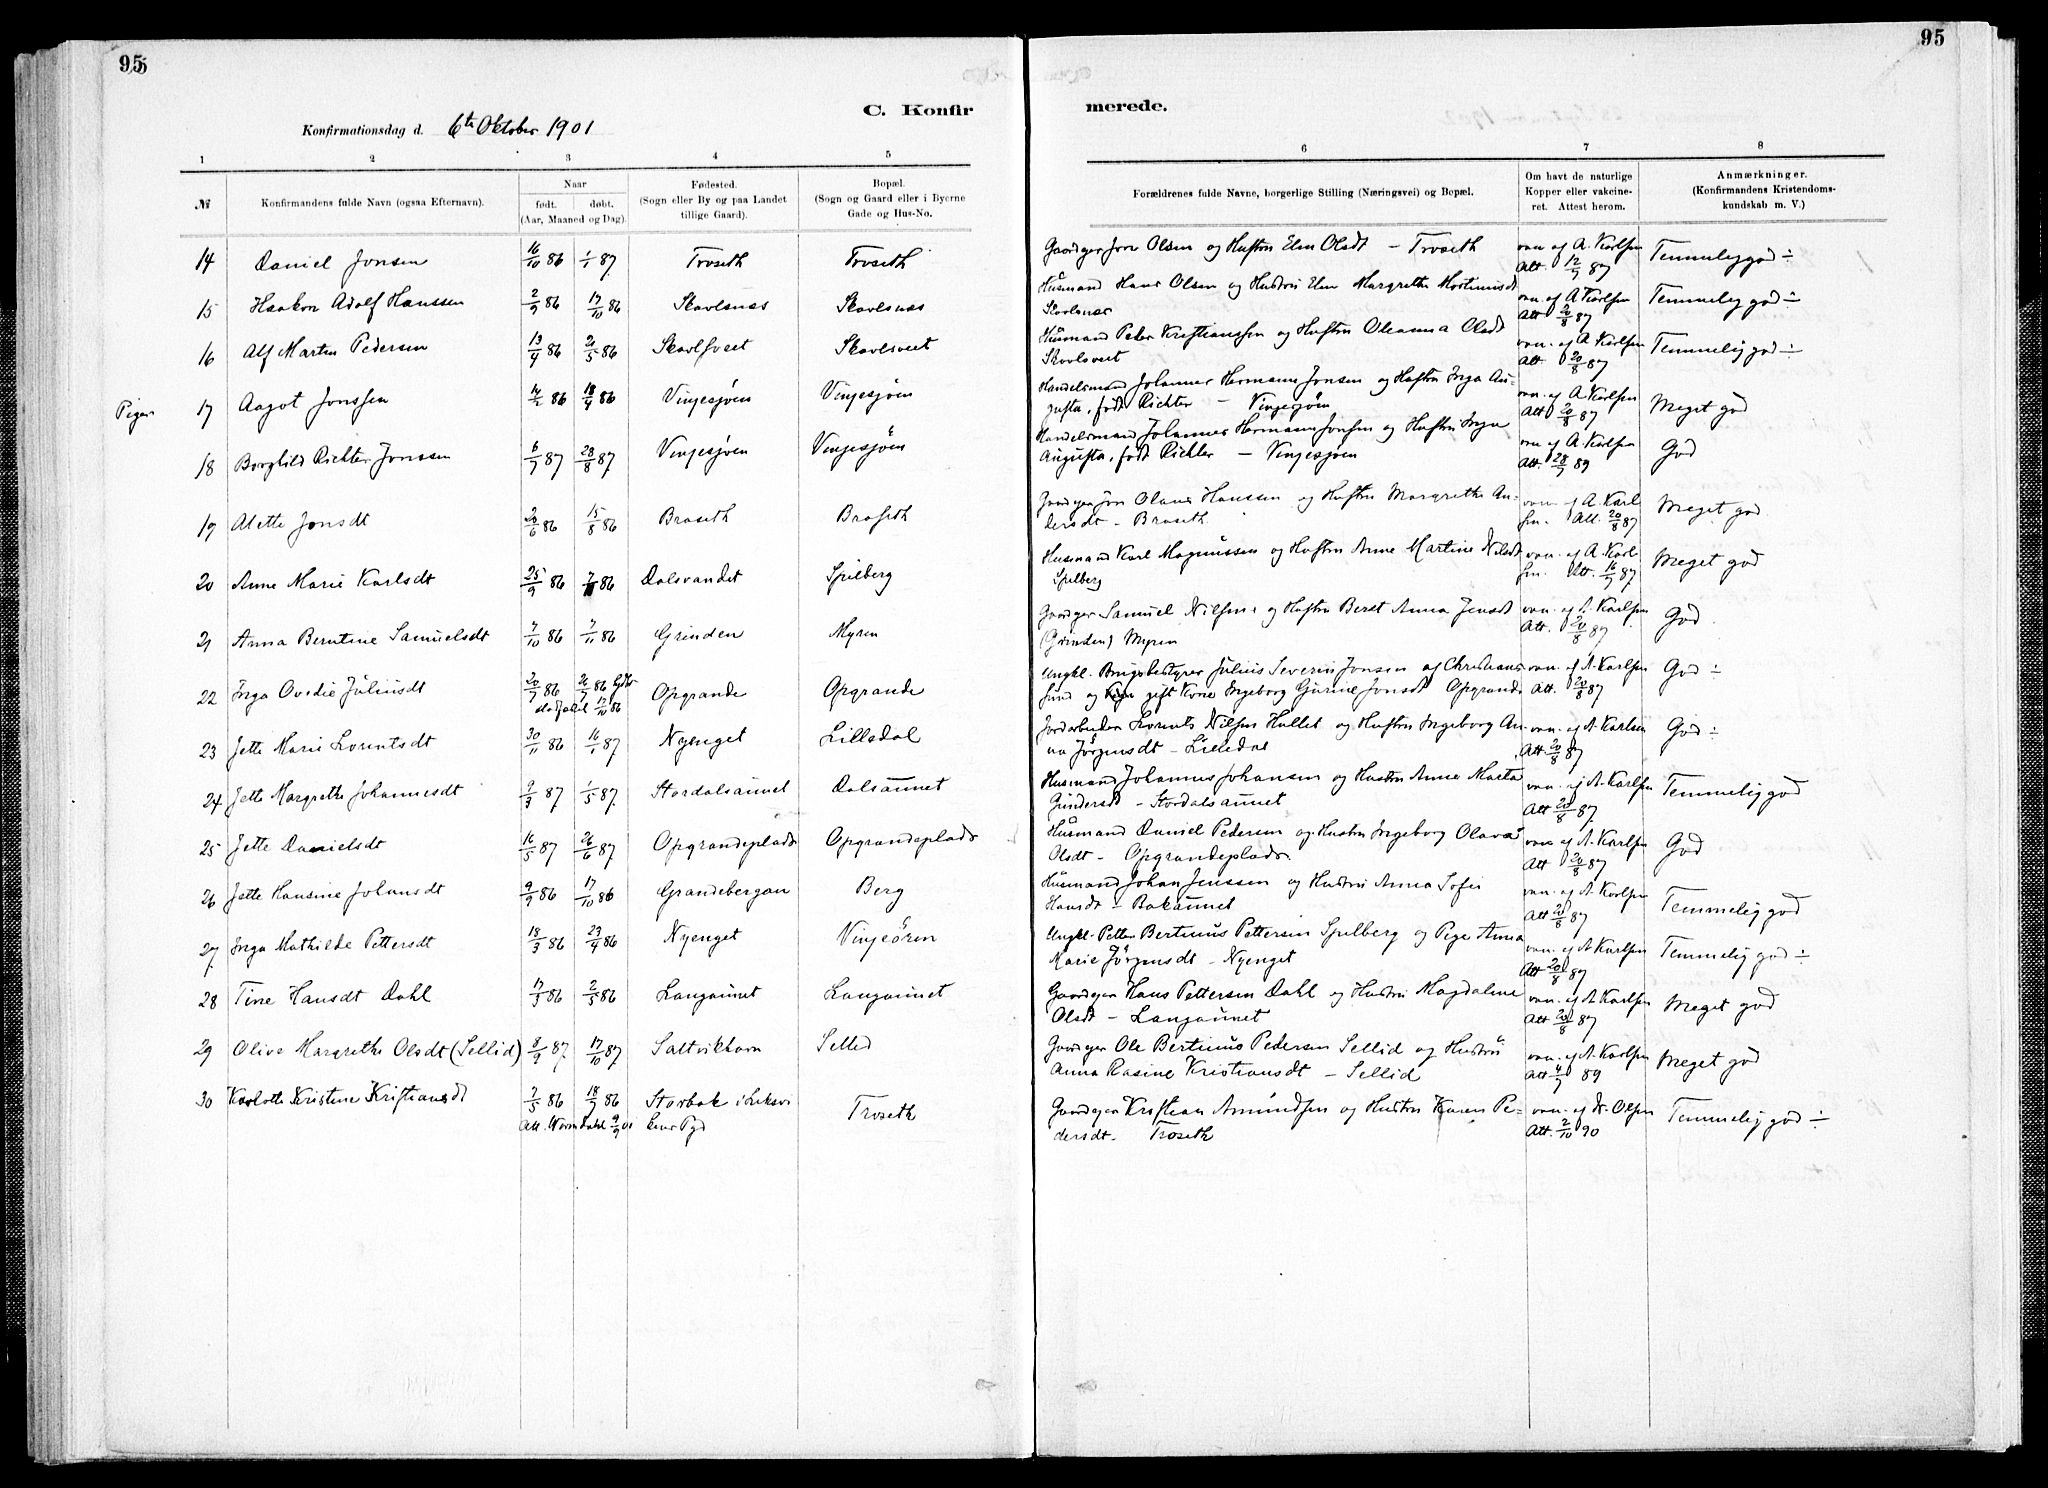 95
95
C. Konfir
merede.
Konfirmationsdag d. 6te Oktober 1901
1 2 3 4 5 6 7 8
№ Konfirmandens fulde Navn (ogsaa Efternavn). Naar født. døbt. (Aar, Maaned og Dag). Fødested. (Sogn eller By og paa Landet tillige Gaard). Bopæl. (Sogn og Gaard eller i Byerne Gade og Hus-No. Forældrenes fulde Navne, borgerlige Stilling (Næringsvei) og Bopæl. Om havt de naturlige Kopper eller vakcineret. Attest herom. Anmærkninger. (Konfirmandens Kristendomskundskab m. V.)
14 Daniel Jonsen 16/10 86 1/1 87 Troseth Troseth Gaardeger Jon Olsen og Hustru Elen Olsdt – Troseth vac. af A. Karlsen Att. 12/9 87 Temmelig god ÷
15 Haakon Adolf Hanssen 2/9 86 17/10 86 Skavlsnæs Skavlsnæs Husmand Hans Olsen og Hustru Elen Margrethe Mortinusdt Skavlsnæs vac. af A Karlsen Att 20/8 87 Temmelig god ÷
16 Alf Martin Pedersen 13/4 86 2/5 86 Skavlsveet Skavlsveet Husmand Peter Kristianssen og Hustru Oleanna Olsdt Skavlsveet vac. af A Karlsen Att. 20/8 87 Temmelig god ÷
Piger 17 Aagot Jonssen 86 18/4 86 Vinjesjøen Vinjesjøen Handelsmand Johannes Hermann Jonsen og Hustru Inga Augusta, født Richter – Vinjesjøen vac. af A Karlsen Att 20/8 87 Meget god
18 Borghild Richter Jonssen 6/7 87 28/8 87 Vinjesjøen Vinjesjøen Handelsmand Johannes Hermann Jonsen og Hustru Inga Augusta, født Richter – Vinjesjøen vac af A. Karlsen Att. 28/7 89 God
19 Alette Jonsdt 86 15/8 86 Braseth Braseth Gaardeger Jon Olaus Hanssen og Hustru Margrethe Andersdt – Braseth vac. af A. Karlsen. Att. 20/8 87 Meget god
20 Anne Marie Karlsdt 25/9 86 86 Dalsvandet Spilberg Husmand Karl Magnussen og Hustru Anne Martine Nilsdt Spilberg vac. af A. Karlsen. Att. 16/9 87 Meget god
21 Anna Berntine Samuelsdt 7/10 86 7/11 86 Grinden Myren Gaardeger Samuel Nilsen og Hustru Beret Anna Jensdt (Grinden) Myren vac. af A. Karlsen Att. 20/8 87 God
22 Inga Ovedie Juliusdt 20/7 86 86 Opgrande Opgrande Ungkl. Brugsbestyrer Julius Severin Jonsen af Christiansund og gift Kone Ingeborg Gurine Jonsdt Opgrande vac. af A. Karlsen Att. 20/8 87 God ÷
23 Jette Marie Lorentsdt 30/11 86 16/1 87 Nyenget Lilledal Jordarbeider Lorents Nilsen Hallet og Hustru Ingeborg Anna Jörgensdt – Lilledal vac. af A Karlsen Att. 20/8 87 God ÷
24 Jette Margrethe Johannesdt 9/3 87 1/5 87 Stordalsaunet Dalsaunet Husmand Johannes Johansen og Hustru Anne Marta Gundersdt – Stordalsaunet vac. af A. Karlsen Att 20/8 87 Temmelig god
25 Jette Danielsdt 16/5 87 26/6 87 Opgrandeplads Opgrandeplads Husmand Daniel Pedersen og Hustru Ingeborg Olava Olsdt – Opgrandeplads vac af A. Karlsen Att 20/8 87 God
26 Jette Hansine Johansdt 9/9 86 17/10 86 Grandebergan Berg Husmand Johan Jenssen og Hustru Anna Sofie Hansdt – Bakaunet vac. af A. Karlsen Att 20/8 87 Temmelig god
27 Inga Mathilde Pettersdt 18/3 86 23/4 86 Nyenget Vinjeören Ungkl. Petter Bertinus Pettersen Spilberg og Pige Anna Marie Jörgensdt – Nyenget vac. af A Karlsen Att 20/8 87 Temmelig god ÷
28 Tine Hansdt Dahl 17/3 86 2/5 86 Langaunet Langaunet Gaardeger Hans Pettersen Dahl og Hustru Magdalene Olsdt – Langaunet vac. af A Karlsen Att 20/8 87 Meget god
29 Olive Margrethe Olsdt (Sellid) 8/9 87 17/10 87 Saltvikhavn Selled Gaardeger Ole Bertinus Pedersen Sellid og Hustru Anna Rasine Kristiansdt – Sellid vac. af A. Karlsen Att 4/7 89 Meget god
30 Karlotte Kristine Kristiansdt 2/5 86 18/7 86 Storbak i Leksvikens Pgd Att. Worm Dahl 9/9 01 Troseth Gaardeger Kristian Amundsen og Hustru Karen Pedersdt. Troseth vac. af N. Olsen Att. 2/10 90 Temmelig god ÷